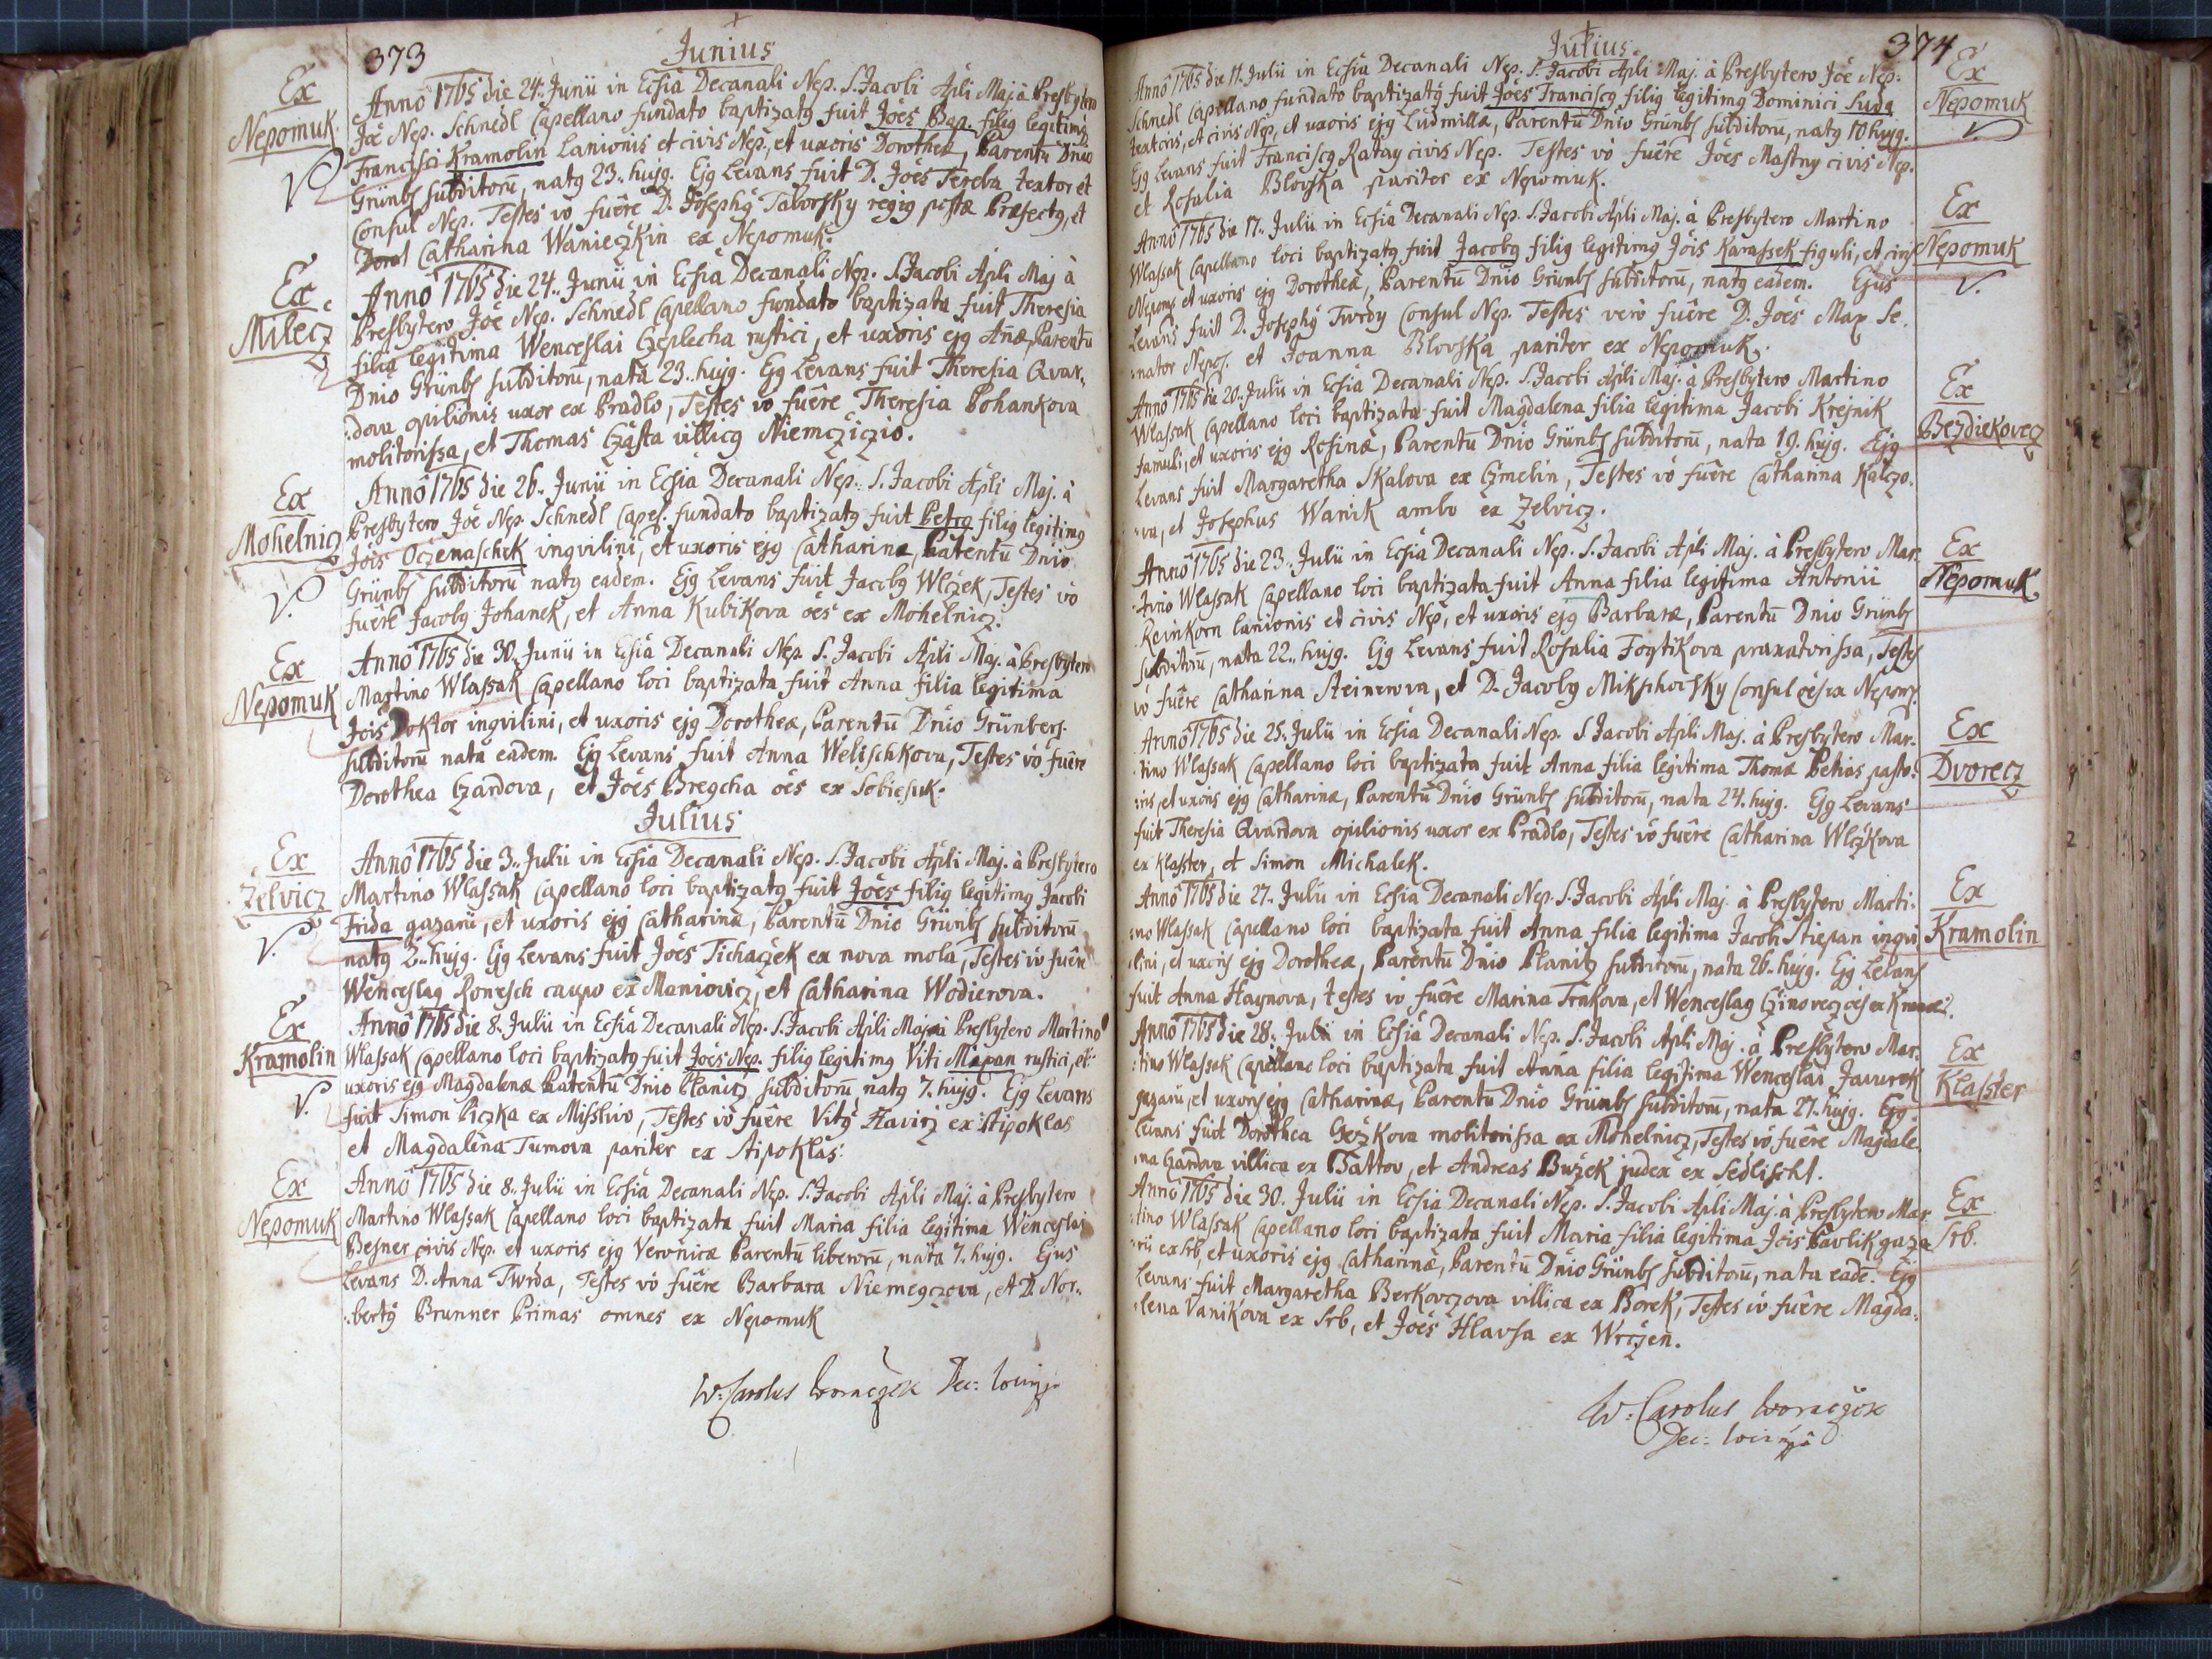 373
Junius
Ex
Nepomuk
Anno 1765 die 24. Junii in Ecsia Decanali Nep. S. Jacobi Apli Maj. à Presbytero
Joe Nep. Schnedl Capellano fundato baptizatg fuit Joes Bap. filig legitimg
Francisci Kramolin Lanionis et civis Nep., et uxoris Dorotheæ, Parentū Dnio
Grünb. subditorū, natg 23. hujg. Ejg Levans fuit D. Joes Tereba textor et
Consul Nep. Testes vò fuêre D. Josephg Taborsky regig postæ Præfectg, et
Catharina Waniezkin ex Nepomuk.
Ex
Milecz
Anno 1765 die 24. Junii in Ecsia Decanali Nep. S. Jacobi Apli Maj à
Presbytero Joe Nep. Schnedl Capellano fundato baptizata fuit Theresia
filia legitima Wenceslai Czeplecha rustici, et uxoris ejg Añæ, Parentū
Dnio Grünb. subditorū, nata 23. hujg. Ejg Levans fuit Theresia Qvar,
:dova opilionis uxor ex Pradlo, Testes vò fuêre Theresia Pohankova
molitorissa, et Thomas Czasta villicg Niemcziczio.
Ex
Mohelnicz
Anno 1765 die 26. Junii in Ecsia Decanali Nep. S. Jacobi Apli Maj. à
Presbytero Joe Nep. Schnedl Capel. fundato baptizatg fuit Petrg filig legitimg
Jois Oczenaschek inqvilini, et uxoris ejg Catharinæ, Parentū Dnio
Grünb. subditorū natg eadem. Ejg Levans fuit Jacobg Wlczek, Testes vò
fuêre Jacobg Johanek, et Anna Kubikova oes ex Mohelnicz.
Ex
Nepomuk
Anno 1765 die 30. Junii in Ecsia Decanali Nep. S. Jacobi Apli Maj. à Presbytero
Martino Wlassak Capellano loci baptizata fuit Anna filia legitima
Jois Doktor inqvilini, et uxoris ejg Dorotheæ, Parentū Dnio Grünbers.
subditorū nata eadem. Ejg Levans fuit Anna Welischkova, Testes vò fuêre
Dorothea Czardova, et Joes Bregcha oes ex Sobiesuk.
Julius
Ex
Zelvicz
Anno 1765 die 3. Julii in Ecsia Decanali Nep. S. Jacobi Apli Maj. à Presbytero
Martino Wlassak Capellano loci baptizatg fuit Joes filig legitimg Jacobi
Frida gazarii, et uxoris ejg Catharinæ, Parentū Dnio Grünb. subditorū
natg 2. hujg. Ejg Levans fuit Joes Tichaczek ex nova mola, Testes vò fuêre
Wenceslag Ronesch caupo ex Maniovicz, et Catharina Wodierova.
Ex
Kramolin
Anno 1765 die 8. Julii in Ecsia Decanali Nep. S. Jacobi Apli Maj. à Presbytero Martino
Wlassak Capellano loci baptizatg fuit Joes Nep. filig legitimg Viti Mapan rustici, et
uxoris ejg Magdalenæ Parentū Dnio Planicz subditorū, natg 7. hujg. Ejg Levans
fuit Simon Piczka ex Misslivo, Testes vò fuêre Vitg Havirz ex Stipoklas
et Magdalena Tumova pariter ex Stipoklas.
Ex
Nepomuk
Anno 1765 die 8. Julii in Ecsia Decanali Nep. S. Jacobi Apli Maj. à Presbytero
Martino Wlassak Capellano loci baptizata fuit Maria filia legitima Wenceslai
Besner civis Nep. et uxoris ejg Veronicæ Parentū liberorū, nata 7. hujg. Ejus
Levans D. Anna Twrda, Testes vò fuêre Barbara Niemegczova, et D. Nor:
:bertg Brunner Primas omnes ex Nepomuk
W: Carolus Dec:
374
Julius
Ex
Nepomuk
Anno 1765 die 11. Julii in Ecsia Decanali Nep. S. Jacobi Apli Maj. à Presbytero Joe Nep.
Schnedl Capellano fundato baptizatg fuit Joes Franciscg filig legitimg Dominici Suda
textoris, et civis Nep, et uxoris ejg Ludmillæ, Parentū Dnio Grünb. subditorū, natg 10 hujg.
Ejg Levans fuit Franciscg Ratay civis Nep. Testes vò fuêre Joes Mastny civis Nep.
et Rosalia Blovska pariter ex Nepomuk.
Ex
Nepomuk
Anno 1765 die 17. Julii in Ecsia Decanali Nep. S. Jacobi Apli Maj. à Presbytero Martino
Wlassak Capellano loci baptizatg fuit Jacobg filig legitimg Jois Karassek figuli, et civis
Nepom. et uxoris ejg Dorotheæ, Parentū Dnio Grünb. subditorū, natg eadem. Ejus
Levans fuit D. Josephg Twrdy Consul Nep. Testes verò fuêre D. Joes Max Se,
:nator Nepo. et Joanna Blovska pariter ex Nepomuk.
Ex
Bezdiekovecz
Anno 1765 die 20. Julii in Ecsia Decanali Nep. S. Jacobi Apli Maj. à Presbytero Martino
Wlassak Capellano loci baptizata fuit Magdalena filia legitima Jacobi Krejnik
famuli, et uxoris ejg Rosinæ, Parentū Dnio Grünb. subditorū, nata 19. hujg. Ejg
Levans fuit Margaretha Skalova ex Czmelin, Testes vò fuêre Catharina Kalczo,
:va, et Josephus Wanik ambo ex Zelvicz.
Ex
Nepomuk
Anno 1765 die 23. Julii in Ecsia Decanali Nep. S. Jacobi Apli Maj. à Presbytero Mar:
:tino Wlassak Capellano loci baptizata fuit Anna filia legitima Antonii
Reinkorn lanionis et civis Nep, et uxoris ejg Barbaræ, Parentū Dnio Grünb
subditorū, nata 22. hujg. Ejg Levans fuit Rosalia Fogtikova praxatorissa, Testes
vò fuêre Catharina Steinerova, et D. Jacobg Mikschovsky Consul oes ex Nepom.
Ex
Dvorecz
Anno 1765 die 25. Julii in Ecsia Decanali Nep. S. Jacobi Apli Maj. à Presbytero Mar:
:tino Wlassak Capellano loci baptizata fuit Anna filia legitima Thomæ Petias pasto:
:ris, et uxoris ejg Catharinæ, Parentū Dnio Grünb subditorū, nata 24. hujg. Ejg Levans
fuit Theresia Qvardova opilionis uxor ex Pradlo, Testes vò fuêre Catharina Wlczkova
ex Klaster, et Simon Michalek.
Ex
Kramolin
Anno 1765 die 27. Julii in Ecsia Decanali Nep. S. Jacobi Apli Maj. à Presbytero Marti:
:no Wlassak Capellano loci baptizata fuit Anna filia legitima Jacobi Stiepan inqvi
:lini, et uxoris ejg Dorotheæ, Parentū Dnio Planitz subditorū, nata 26. hujg. Ejg Levans
fuit Anna Haynova, testes vò fuêre Marina Trnkova, et Wenceslag Czinovecz oes ex
Ex
Klaster
Anno 1765 die 28. Julii in Ecsia Decanali Nep. S. Jacobi Apli Maj. à Presbytero Mar:
:tino Wlassak Capellano loci baptizata fuit Anna filia legitima Wenceslai Javurek
gazarii, et uxoris ejg Catharinæ, Parentū Dnio Grünb subditorū, nata 27. hujg. Ejg
Levans fuit Dorothea molitorissa ex Mohelnicz, Testes vò fuêre Magdale
:na Czardova villica ex Battov, et Andreas Buzek judex ex Sedlischt.
Ex
Srb.
Anno 1765 die 30. Julii in Ecsia Decanali Nep. S. Jacobi Apli Maj. à Presbytero Mar
:tino Wlassak Capellano loci baptizata fuit Maria filia legitima Jois Pavlik gaza
:rii ex Srb, et uxoris ejg Catharinæ, Parentū Dnio Grünb subditorū, nata eadē. Ejg
Levans fuit Margaretha Berkovczova villica ex Borek, Testes vò fuêre Magda:
:lena Vanikova ex Srb, et Joes Hlavsa ex Wrczen.
W: Carolus
Dec: